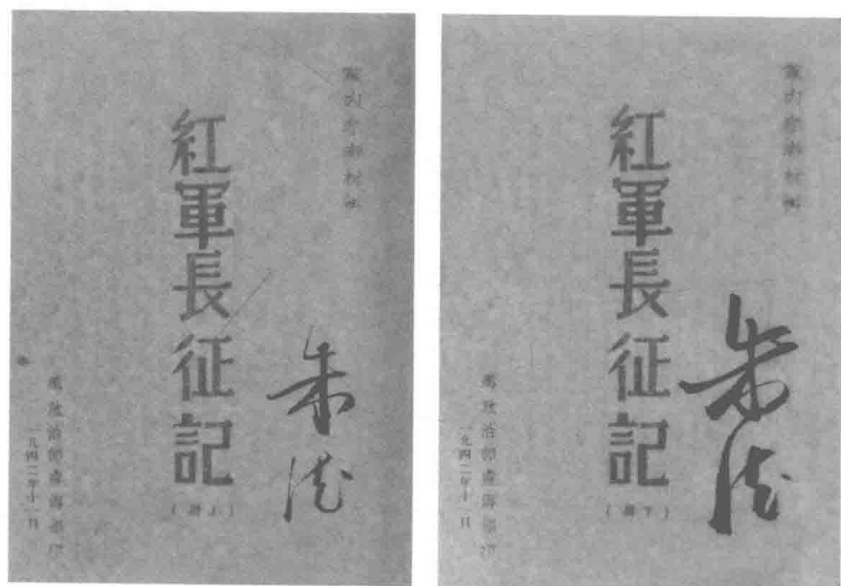 黨內參考材料
紅軍長征記
(上冊)
朱德
總政治部宣傳部印
一九四二年十一月
黨內參考材料
紅軍長征記
(下冊)
朱德
總政治部宣傳部印
一九四二年十一月